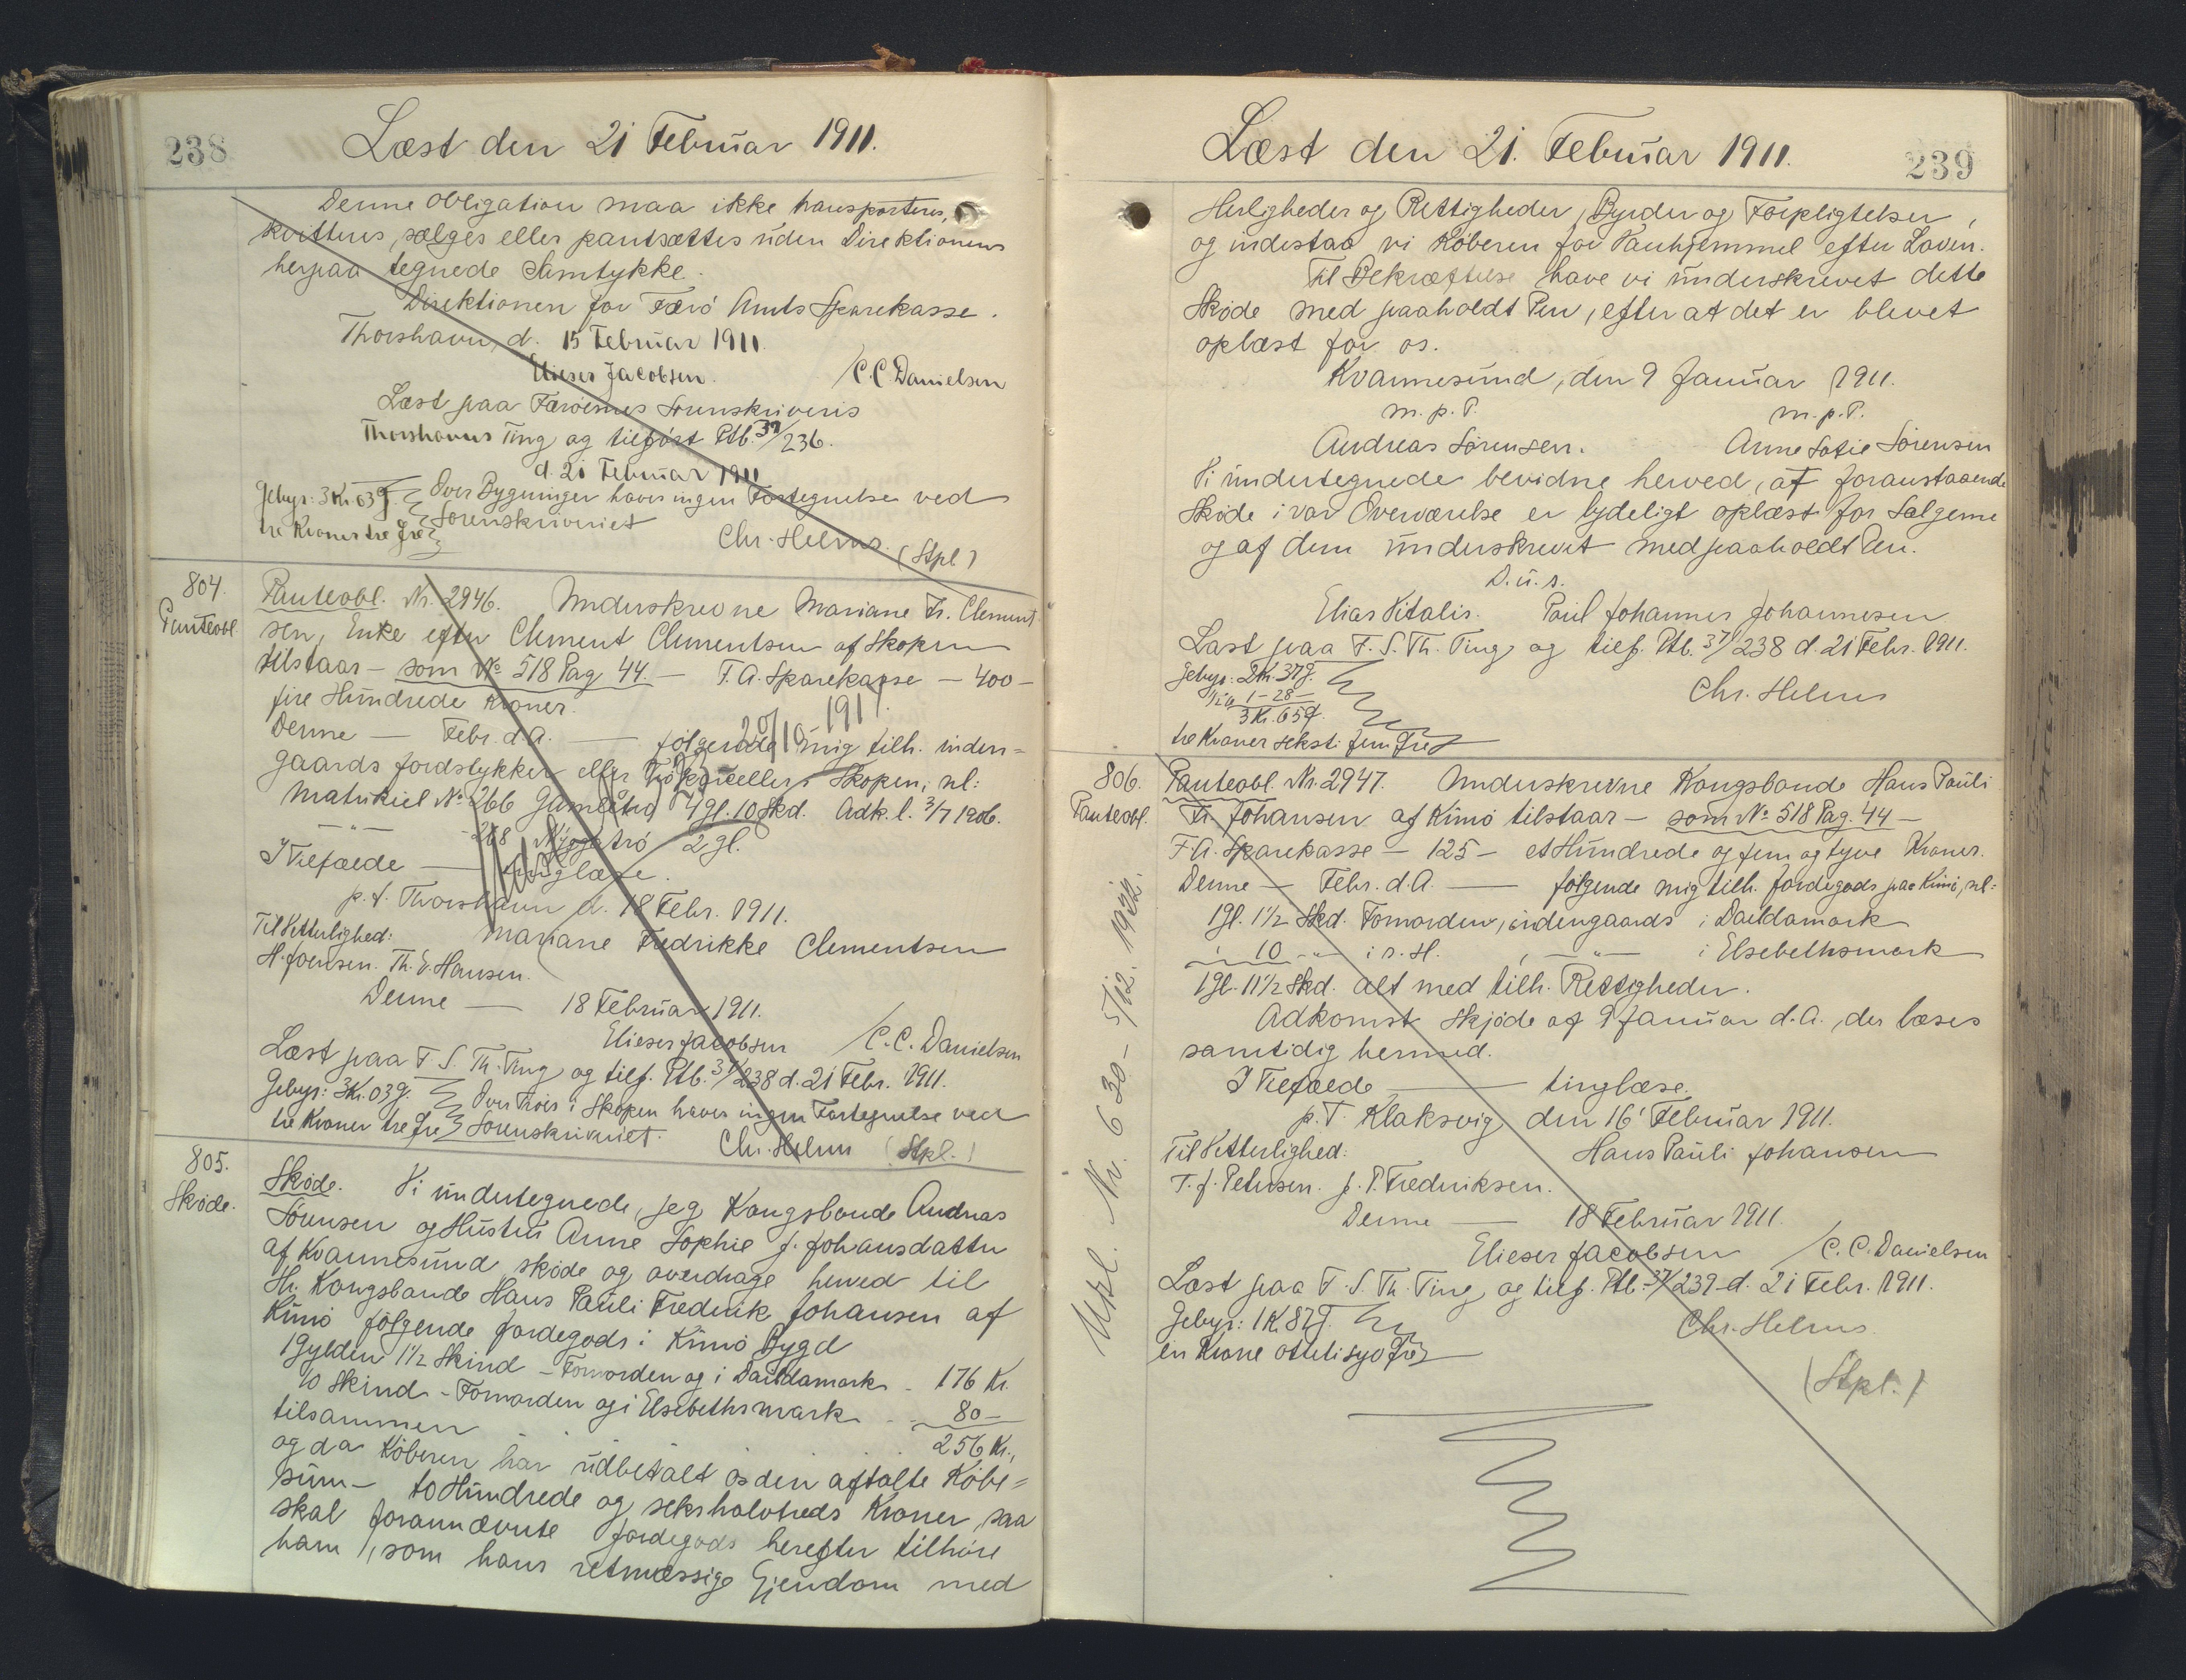 238
Læst den 21 Februar 1911.
Denne Obligation maa ikke transporteres,
kvitteres, sælges eller pantsættes uden Direktionens
herpaa tegnede Samtykke.
Direktionen for Færö Amts Sparekasse.
Thorshavn, d. 15 Februar 1911.
Elieser Jacobsen. / C. C. Danielsen
Læst paa Færöernes Sorenskriveris
Thorshavns Ting og tilfört Ptb. 37/236.
d. 21 Februar 1911
Gebyr: 3 Kr. 03 Ø. Over Bygninger haves ingen Fortegnelse ved
tre Kroner tre Øre Sorenskriveriet
Chr. Helms. (Stpl)
804.
Panteobl.
Panteobl. Nr. 2946. Underskrevne Mariane Fr. Clement
sen, Enke efter Clement Clementsen af Skopen
tilstaar – som No 518 Pag 44. – F. A. Sparekasse – 400 –
fire Hundrede Kroner.
Denne — Febr. d. A. — følgende mig tilh. inden=
gaards Jordstykker eller Tröparceller i Skopen, nl:
Matrikiel No 266 4 gl. 10 Skd. Adk. l. 3/7 1906.
— " — - 268 2 gl.
20/10 1917.
I Tilfælde — tinglæse.
p. t. Thorshavn d. 18 Febr. 1911.
Til Vitterlighed: Mariane Fredrikke Clementsen
H. Joensen. Th. E. Hansen.
Denne — 18 Februar 1911.
Elieser Jacobsen / C. C. Danielsen
Læst paa F. S. Th. Ting og tilf. Ptb. 37/238 d. 21 Febr. 1911.
Gebyr: 3 Kr. 03 Ø. Over Tröer i Skopen haves ingen Fortegnelse ved
tre Kroner tre Øre Sorenskriveriet.
Chr. Helms (Stpl.)
805.
Sköde.
Sköde. Vi undertegnede, jeg Kongsbonde Andreas
Sörensen og Hustru Anne Sophie f. Johansdatter
af Kvannesund sköde og overdrage herved til
Hr. Kongsbonde Hans Pauli Fredrik Johansen af
Kunö følgende Jordegods i Kunö Bygd
1 Gylden 1 1/2 Skind – Fornorden og i Daildamark - 176 Kr.
10 Skind – Fornorden og i Elsebethsmark - 80 –
tilsammen 256 Kr.,
og da Köberen har udbetalt os den aftalte Köbe=
sum – to Hundrede og sekshalvtreds Kroner, saa
skal forannævnte Jordegods herefter tilhöre
ham, som hans retmæssige Ejendom med
239
Læst den 21. Februar 1911.
Herligheder og Rettigheder, Byrder og Forpligtelser,
og indestaa vi Köberen for Vanhjemmel efter Loven.
Til Bekræftelse have vi underskrevet dette
Sköde med paaholdt Pen, efter at det er blevet
oplæst for os.
Kvannesund, den 9 Januar 1911.
m. p. P. m. p. P.
Andreas Sörensen. Anne Sofie Sörensen
Vi undertegnede bevidne herved, at foranstaaende
Sköde i vor Overværelse er lydeligt oplæst for Sælgerne
og af dem underskrevet med paaholdt Pen.
D. u. s.
Elias Vitalis. Poul Johannes Johannesen
Læst paa F. S. Th. Ting og tilf. Ptb. 37/238 d. 21 Febr. 1911.
Gebyr: 2 Kr. 37 Ø.
1/2 % 1 – 28 – Chr. Helms
3 Kr. 65 Ø.
tre Kroner seksti fem Øre
806.
Panteobl.
Panteobl. Nr. 2947. Underskrevne Kongsbonde Hans Pauli
Fr. Johansen af Kunö tilstaar – som No 518 Pag. 44 –
F. A. Sparekasse – 125 – et Hundrede og fem og tyve Kroner.
Denne — Febr. d. A. — følgende mig tilh. Jordegods paa Kunö, nl:
1 gl. 1 1/2 Skd. Fornorden, indengaards i Daildamark
" 10 - " - i s. H. , — " — i Elsebethsmark
1 gl. 11 1/2 Skd. alt med tilh. Rettigheder.
Adkomst Skjöde af 9 Januar d. A., der læses
samtidig hermed.
I Tilfælde — tinglæse.
p. T. Klaksvig, den 16' Februar 1911.
Til Vitterlighed: Hans Pauli Johansen
T. J. Petersen. J. P. Fredriksen.
Denne — 18 Februar 1911.
Elieser Jacobsen / C. C. Danielsen
Læst paa F. S. Th. Ting og tilf. Ptb. 37/239 d. 21 Febr. 1911.
Gebyr: 1 Kr. 87 Ø.
en Krone ottetisyv Øre Chr. Helms
(Stpl.)
Nr. 630 – 5/12. 1922.